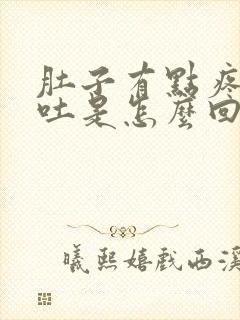 肚子有點疼
吐是怎麼回
曦熙嬉戲西溪